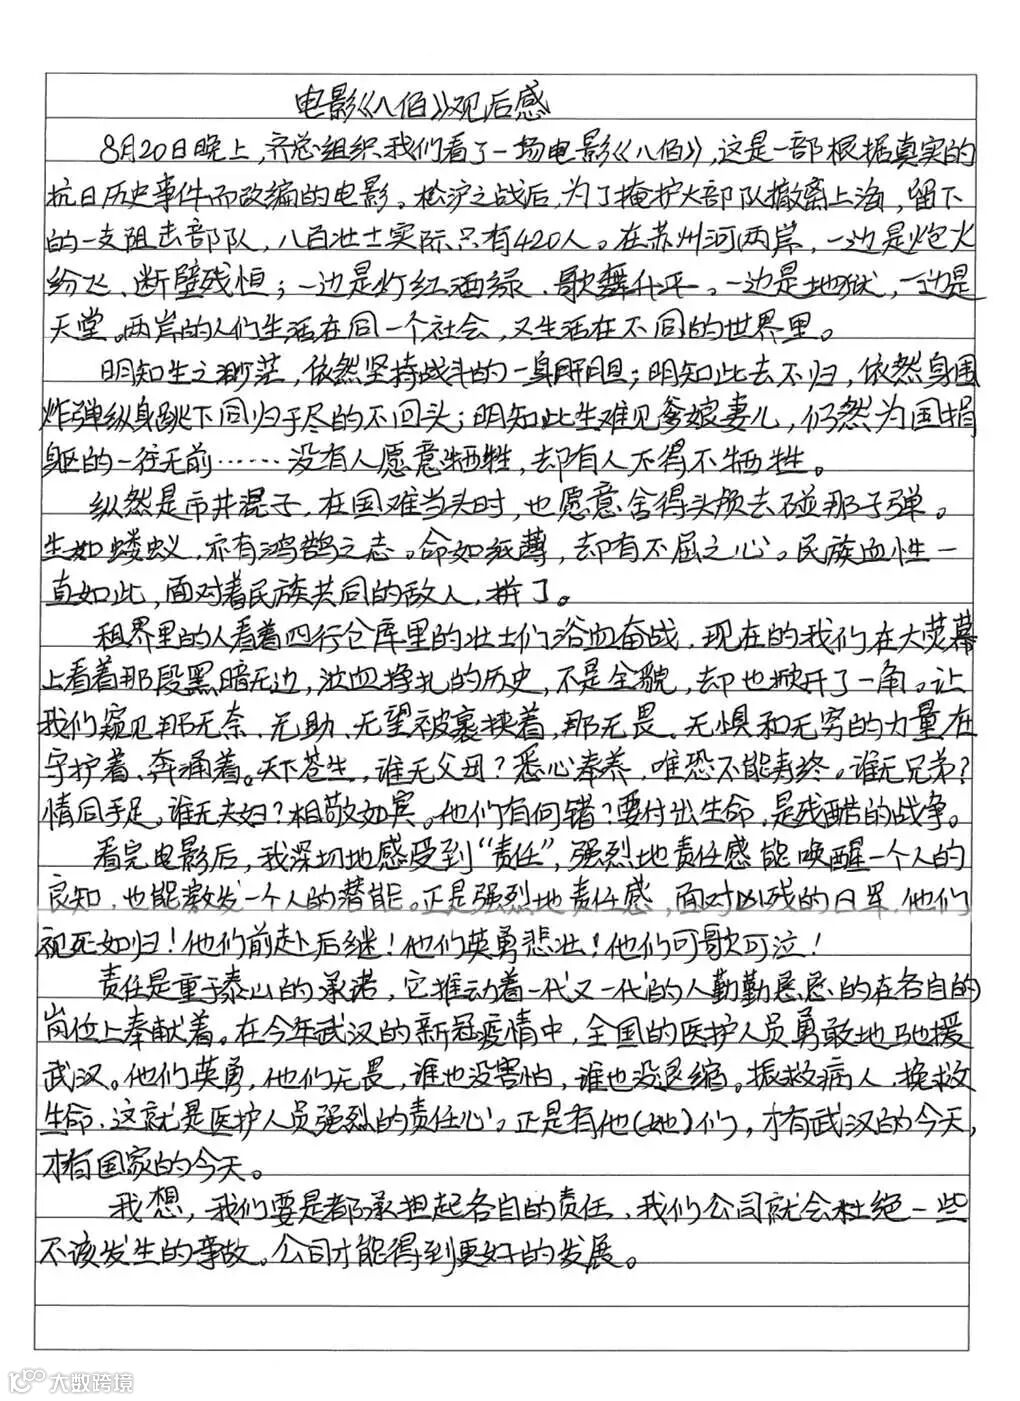 电影《八佰》观后感
8月20日晚上,齐总组织我们看了一场电影《八佰》,这是一部根据真实的
抗日历史事件而改编的电影。松沪之战后,为了掩护大部队撤离上海,留下
的一支阻击部队,八百壮士实际只有420人。在苏州河两岸,一边是炮火
纷飞、断壁残恒;一边是灯红酒绿、歌舞升平。一边是地狱,一边是
天堂。两岸的人们生活在同一个社会,又生活在不同的世界里。
明知生之渺茫,依然坚持战斗的一身肝胆;明知此去不归,依然身围
炸弹纵身跳下同归于尽的不回头;明知此生难见爹娘妻儿,仍然为国捐
躯的一往无前……没有人愿意牺牲,却有人不得不牺牲。
纵然是市井混子,在国难当头时,也愿意舍得头颅去碰那子弹。
生如蝼蚁,亦有鸿鹄之志。命如纸薄,却有不屈之心。民族血性一
直如此,面对着民族共同的敌人,拼了。
租界里的人看着四行仓库里的壮士们浴血奋战,现在的我们在大荧幕
上看着那段黑暗无边,泣血挣扎的历史,不是全貌,却也掀开了一角。让
我们窥见那无奈、无助、无望被裹挟着,那无畏、无惧和无穷的力量在
守护着、奔涌着。天下苍生,谁无父母?悉心奉养,唯恐不能寿终。谁无兄弟?
情同手足,谁无夫妇?相敬如宾。他们有何错?要付出生命,是残酷的战争。
看完电影后,我深切地感受到“责任”,强烈地责任感能唤醒一个人的
良知,也能激发一个人的潜能。正是强烈地责任感,面对凶残的日军,他们
视死如归!他们前赴后继!他们英勇悲壮!他们可歌可泣!
责任是重于泰山的承诺,它推动着一代又一代的人勤勤恳恳的在各自的
岗位上奉献着。在今年武汉的新冠疫情中,全国的医护人员勇敢地驰援
武汉。他们英勇,他们无畏,谁也没害怕,谁也没退缩。振救病人,挽救
生命,这就是医护人员强烈的责任心。正是有他(她)们,才有武汉的今天,
才有国家的今天。
我想,我们要是都承担起各自的责任,我们公司就会杜绝一些
不该发生的事故。公司才能得到更好的发展。
大数跨境